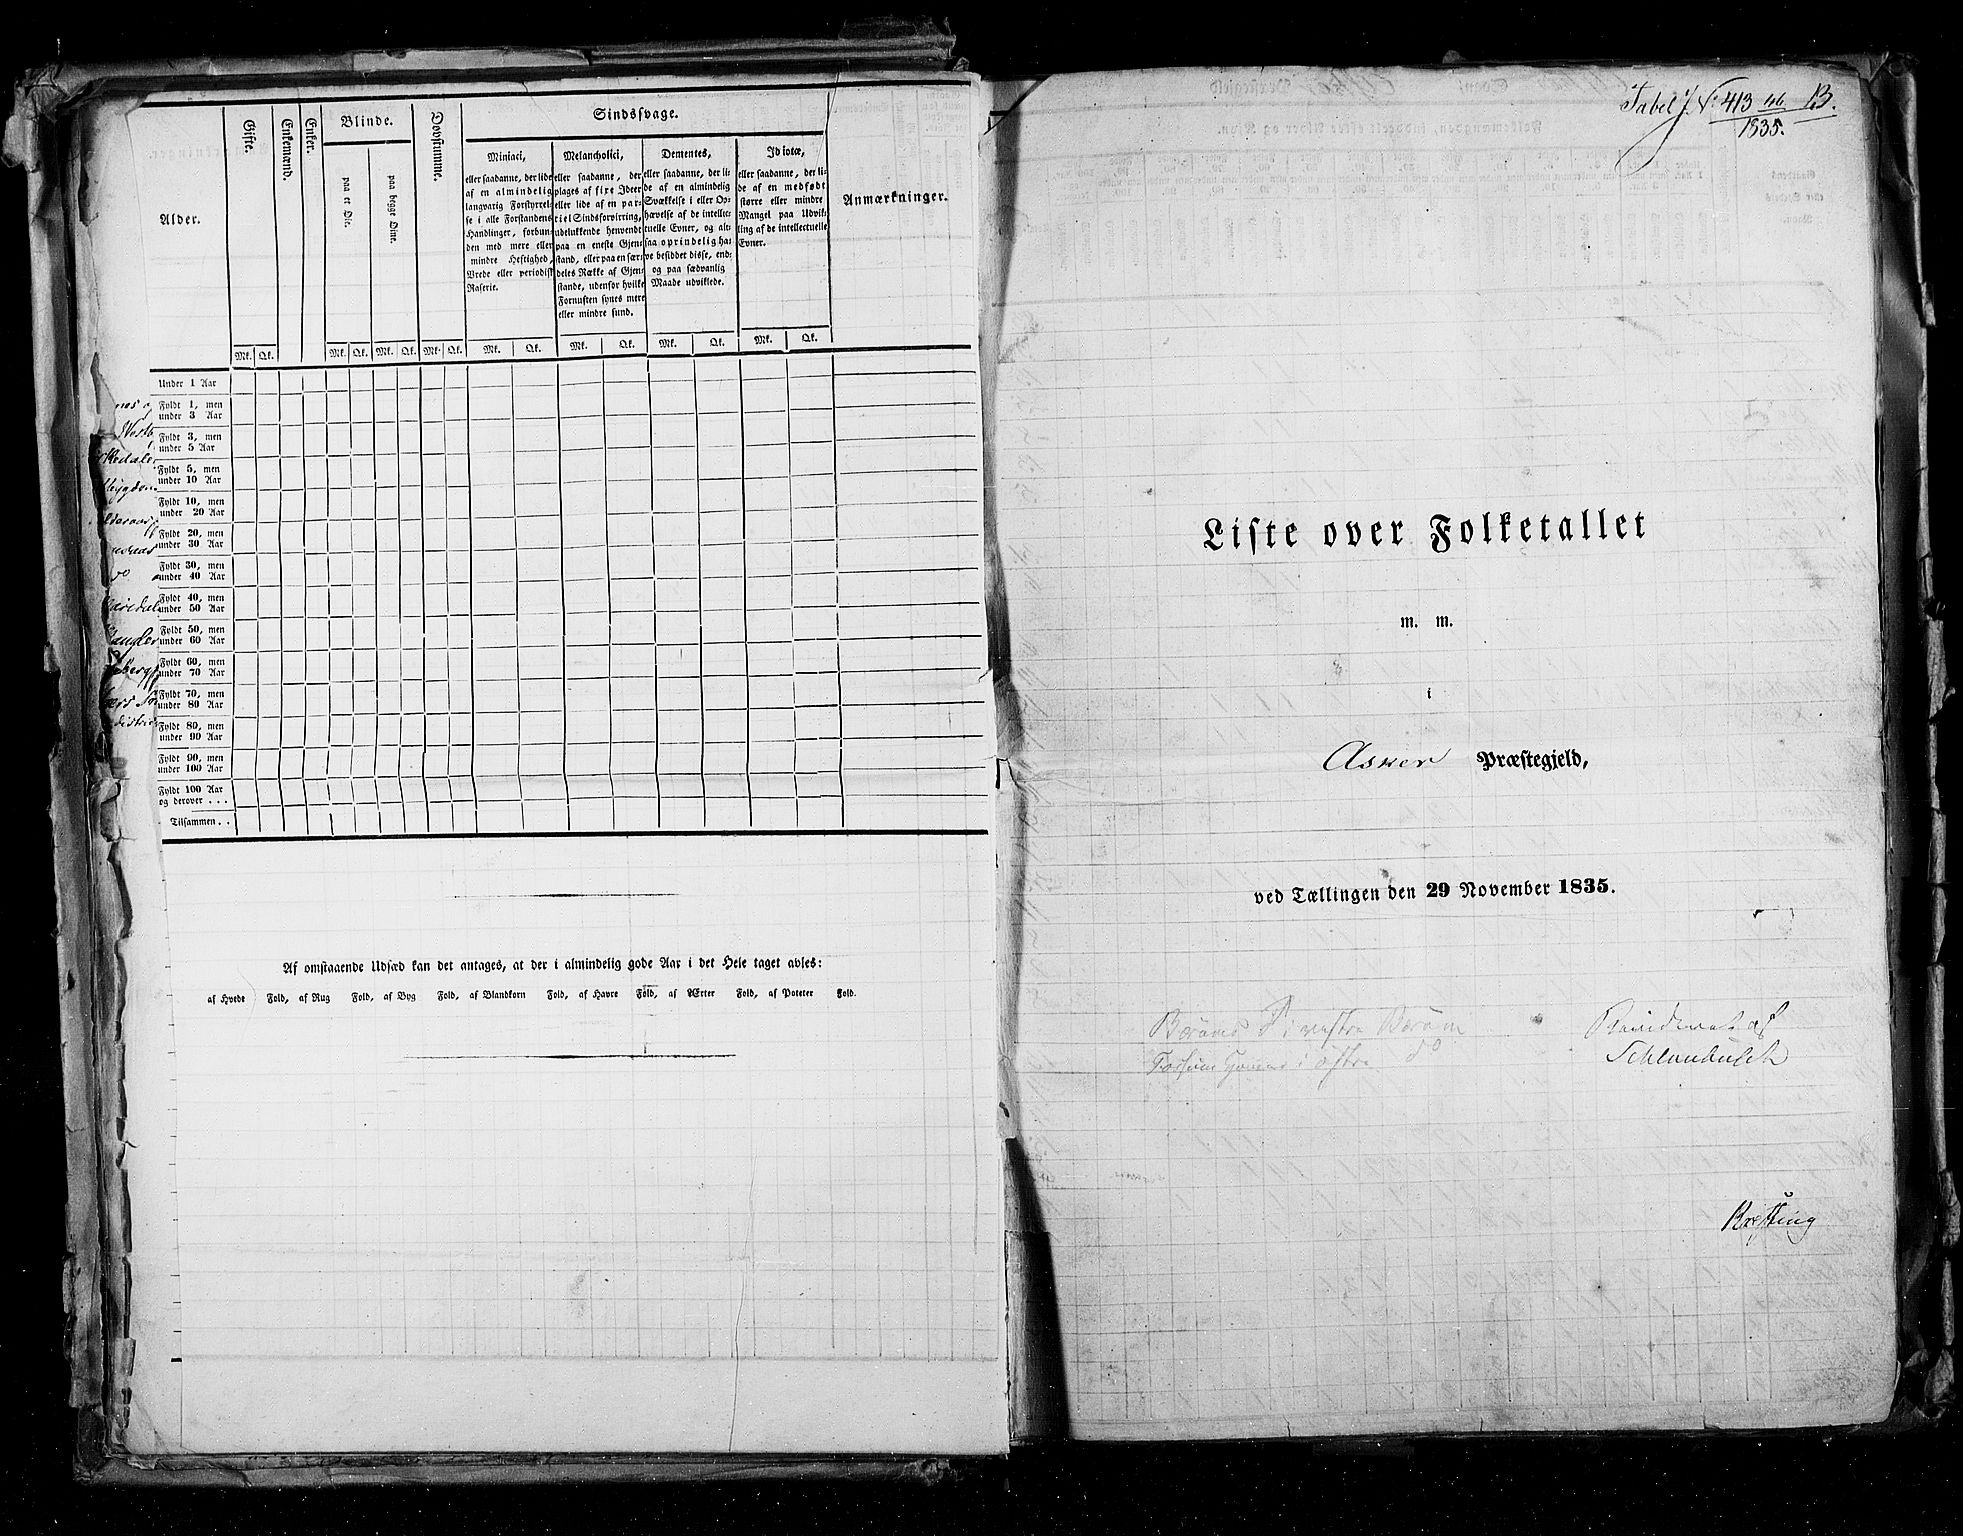 Alder.
Gifte.
Enkemænd.
Enker.
Blinde.
paa et Øie.
paa begge Øine.
Døvstumme.
Sindssvage.
Miniaci,
eller saadanne, der lide
af en almindelig
langvarig Forstyrrel-
se i alle Forstandens
Handlinger, forbun-
den med mere eller
mindre Heftighed,
Vrede eller periodisk
Raserie.
Melancholici,
eller saadanne, der
plages af fixe Ideer
eller lide af en par-
tiel Sindsforvirring,
udelukkende henvendt
paa en eneste Gjen-
stand, eller paa en sær-
deles Række af Gjen-
stande, udenfor hvilke
Fornuften synes mere
eller mindre sund.
Dementes,
eller saadanne, der li-
de af en almindelig
Svækkelse i eller Op-
hævelse af de intellec-
tuelle Evner, og alt-
saa oprindelig ha-
ve besiddet disse, end-
og paa sædvanlig
Maade udviklede.
Idiotæ,
eller saadanne, der li-
de af en medfødt
større eller mindre
Mangel paa Udvik-
ling af de intellectuelle
Evner.
Anmærkninger.
Mk. Qk. Mk. Qk. Mk. Qk. Mk. Qk. Mk. Qk. Mk. Qk. Mk. Qk. Mk. Qk.
Under 1 Aar
Fyldt 1, men
under 3 Aar
Fyldt 3, men
under 5 Aar
Fyldt 5, men
under 10 Aar
Fyldt 10, men
under 20 Aar
Fyldt 20, men
under 30 Aar
Fyldt 30, men
under 40 Aar
Fyldt 40, men
under 50 Aar
Fyldt 50, men
under 60 Aar
Fyldt 60, men
under 70 Aar
Fyldt 70, men
under 80 Aar
Fyldt 80, men
under 90 Aar
Fyldt 90, men
under 100 Aar
Fyldt 100 Aar
og derover . . .
Tilsammen . .
Af omstaaende Udsæd kan det antages, at der i almindelig gode Aar i det Hele taget avles:
af Hvede Fold, af Rug Fold, af Byg Fold, af Blandkorn Fold, af Havre Fold, af Ærter Fold, af Poteter Fold.
Tabel J N: 413 B.
1835.
Liste over Folketallet
m. m.
i
Asker Præstegjeld,
ved Tællingen den 29 November 1835.
Bærums i vestre Bærum
i østre do
Revideret af